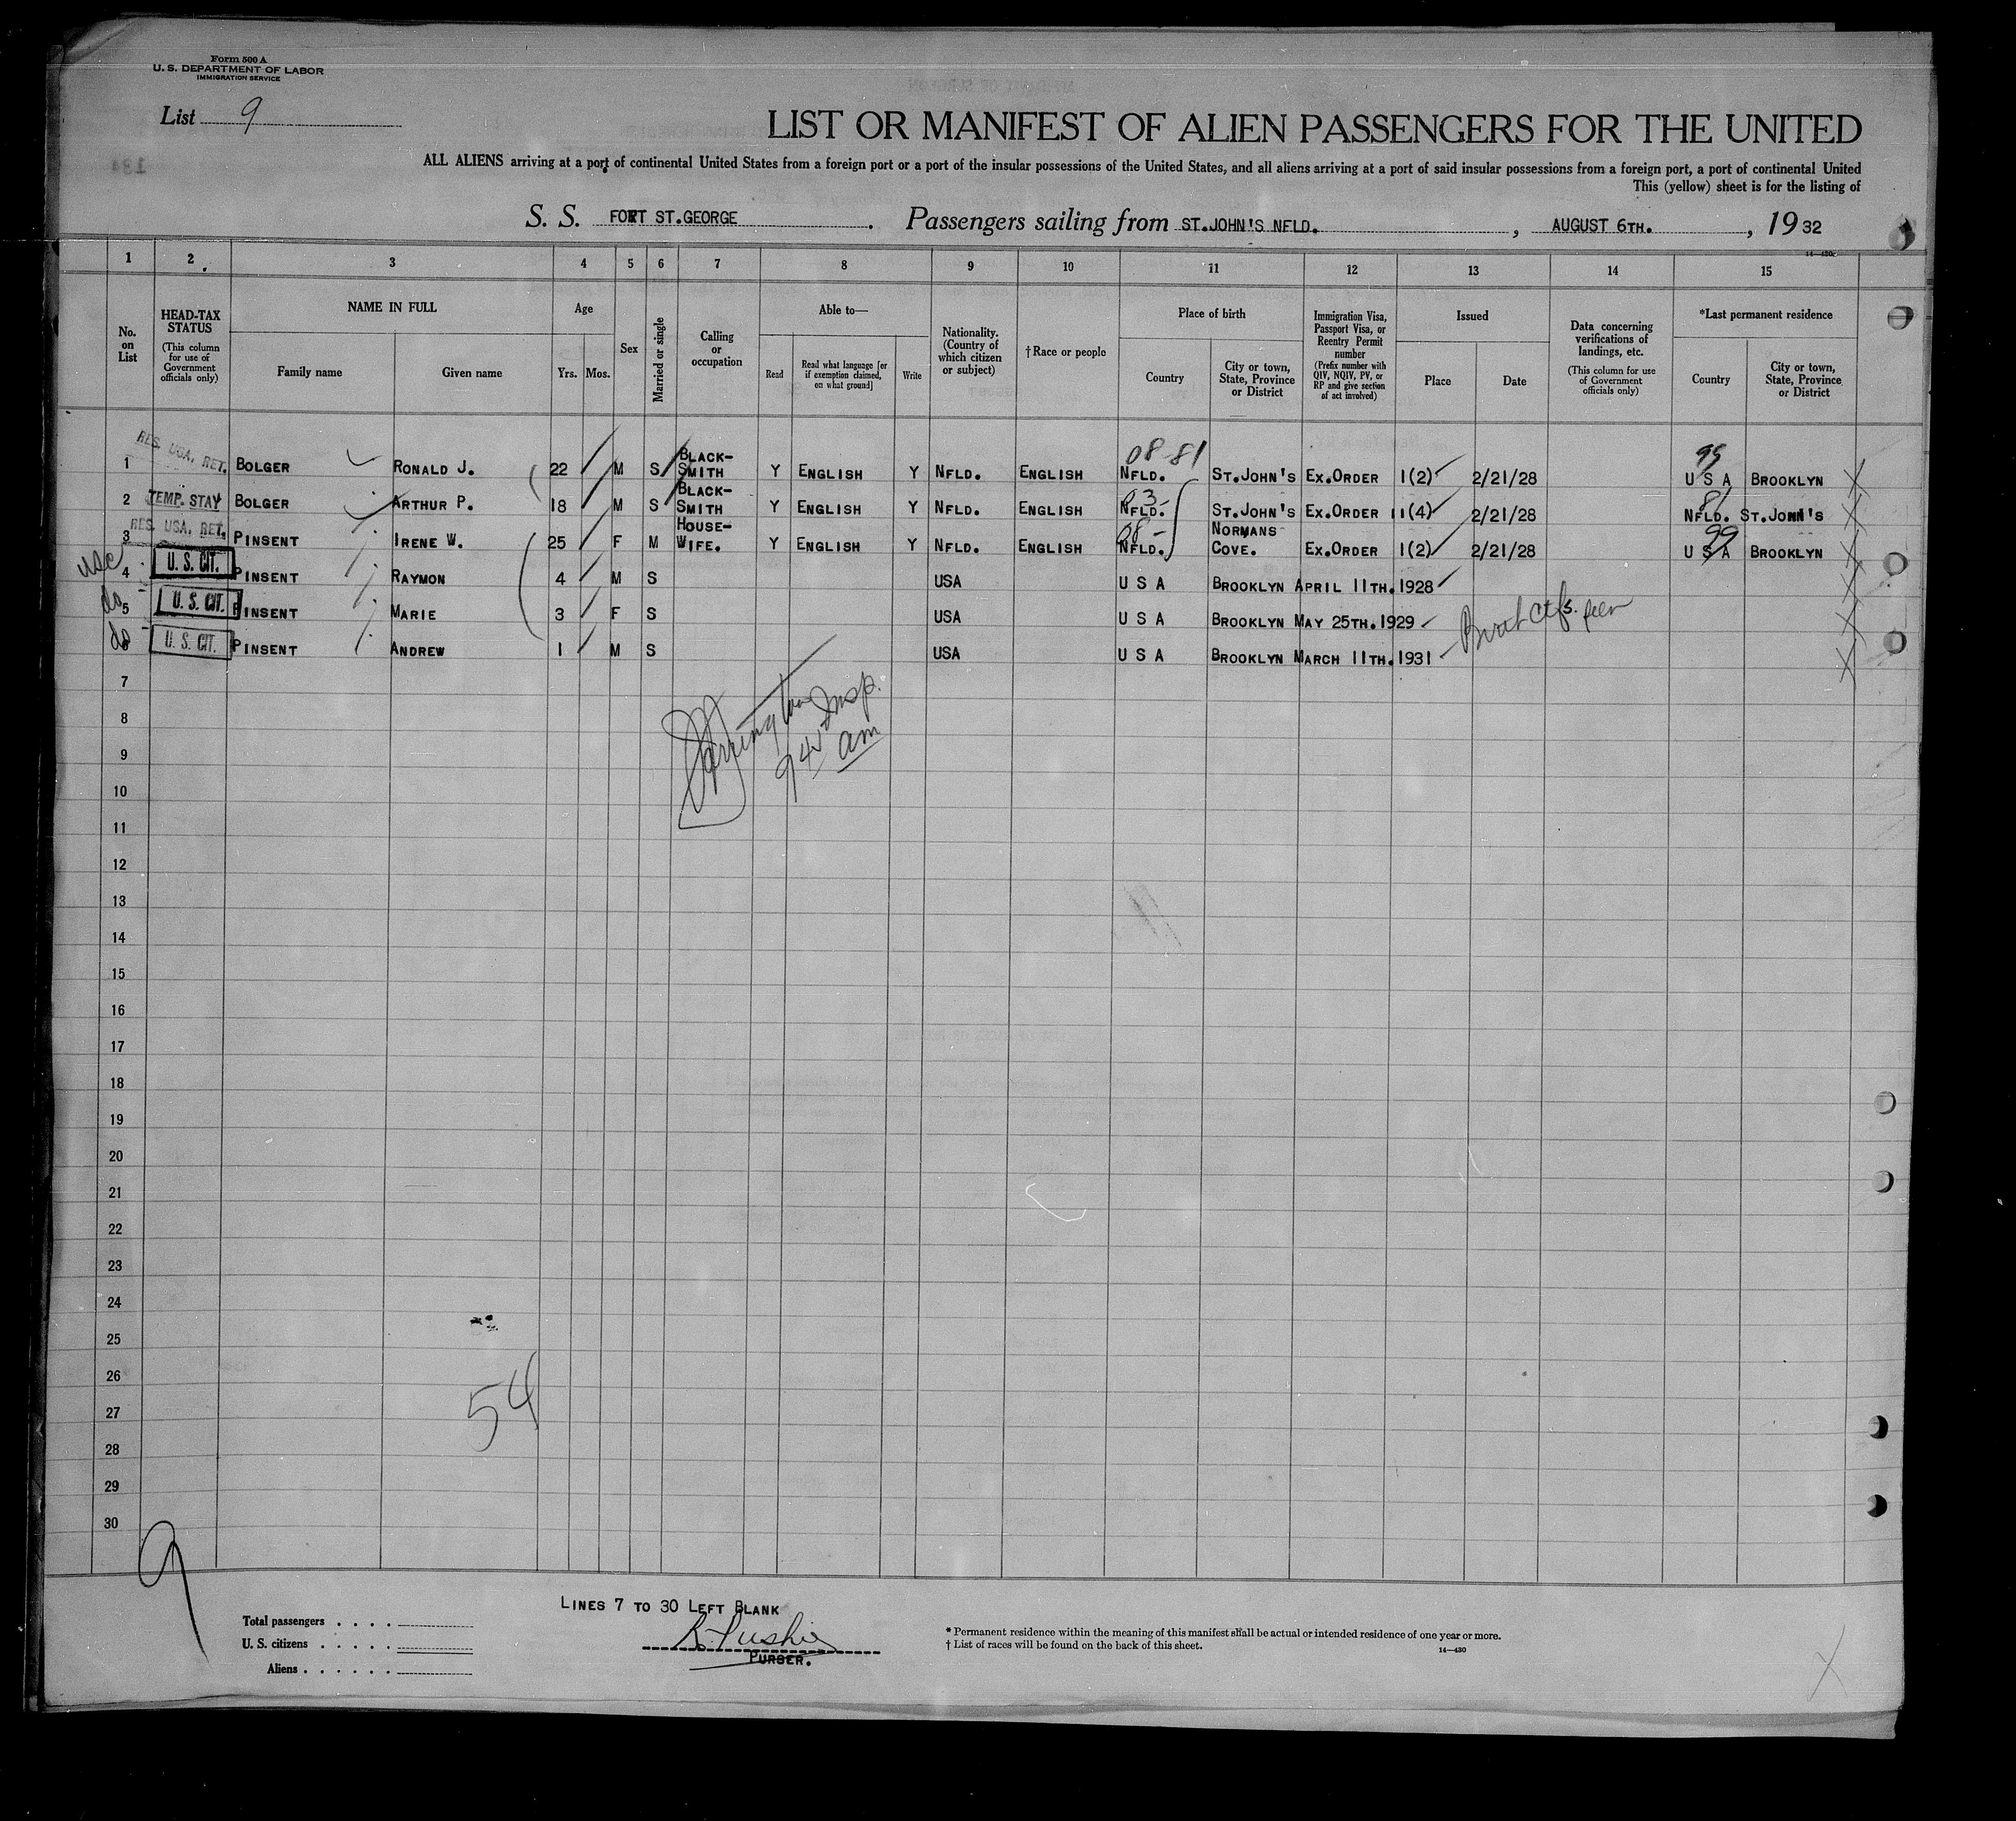 Form 500 A
U. S. DEPARTMENT OF LABOR
IMMIGRATION SERVICE
List 9
LIST OR MANIFEST OF ALIEN PASSENGERS FOR THE UNITED
ALL ALIENS arriving at a port of continental United States from a foreign port or a port of the insular possessions of the United States, and all aliens arriving at a port of said insular possessions from a foreign port, a port of continental United
This (yellow) sheet is for the listing of
S. S. FORT ST.GEORGE . Passengers sailing from ST.JOHN'S NFLD. , AUGUST 6TH. , 1932
14—430
1 2 3 4 5 6 7 8 9 10 11 12 13 14 15
No. on List
HEAD-TAX STATUS
(This column for use of Government officials only)
NAME IN FULL
Family name Given name
Age
Yrs. Mos.
Sex
Married or single
Calling or occupation
Able to—
Read
Read what language [or if exemption claimed, on what ground]
Write
Nationality. (Country of which citizen or subject)
†Race or people
Place of birth
Country
City or town, State, Province or District
Immigration Visa, Passport Visa, or Reentry Permit number
(Prefix number with QIV, NQIV, PV, or RP and give section of act involved)
Issued
Place Date
Data concerning verifications of landings, etc.
(This column for use of Government officials only)
*Last permanent residence
Country
City or town, State, Province or District
08-81 99
1 RES. USA. RET. BOLGER RONALD J. 22 M S BLACK-SMITH Y ENGLISH Y NFLD. ENGLISH NFLD. ST.JOHN'S EX.ORDER 1(2) 2/21/28 U S A BROOKLYN
03- 81
2 TEMP. STAY BOLGER ARTHUR P. 18 M S BLACK-SMITH Y ENGLISH Y NFLD. ENGLISH NFLD. ST.JOHN'S EX.ORDER 11(4) 2/21/28 NFLD. ST.JOHN'S
08- 99
3 RES. USA. RET. PINSENT IRENE W. 25 F M HOUSE-WIFE. Y ENGLISH Y NFLD. ENGLISH NFLD. NORMANS COVE. EX.ORDER 1(2) 2/21/28 U S A BROOKLYN
usc 4 U. S. CIT. PINSENT RAYMON 4 M S USA U S A BROOKLYN APRIL 11TH. 1928
do 5 U. S. CIT. PINSENT MARIE 3 F S USA U S A BROOKLYN MAY 25TH. 1929
Birth Ctfs. seen
do 6 U. S. CIT. PINSENT ANDREW 1 M S USA U S A BROOKLYN MARCH 11TH. 1931
7
8
Insp.
9
945 am
10
11
12
13
14
15
16
17
18
19
20
21
22
23
24
25
26
27
54
28
29
30
9
LINES 7 TO 30 LEFT BLANK
Total passengers
U. S. citizens
Aliens
PURSER.
* Permanent residence within the meaning of this manifest shall be actual or intended residence of one year or more.
† List of races will be found on the back of this sheet.
14—430